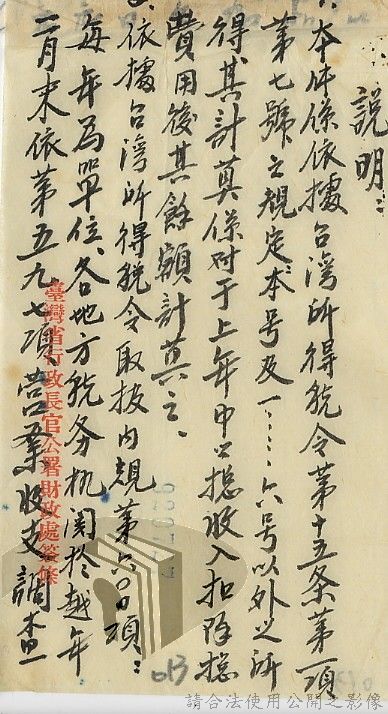 說明：
1.本件係依據台湾所得税令第十五条第一項
第七號之規定本号及一……六号以外之所
得、其計算係对于上年中之總收入扣除總
費用後其餘額計算之、
2.依據台湾所得税令取扱内規第六〇四項：
每年為單位、各地方税务机関於越年
二月末依第五九七項、营業收支調查
臺灣省行政長官公署財政處簽條
013
請合法使用公開之影像